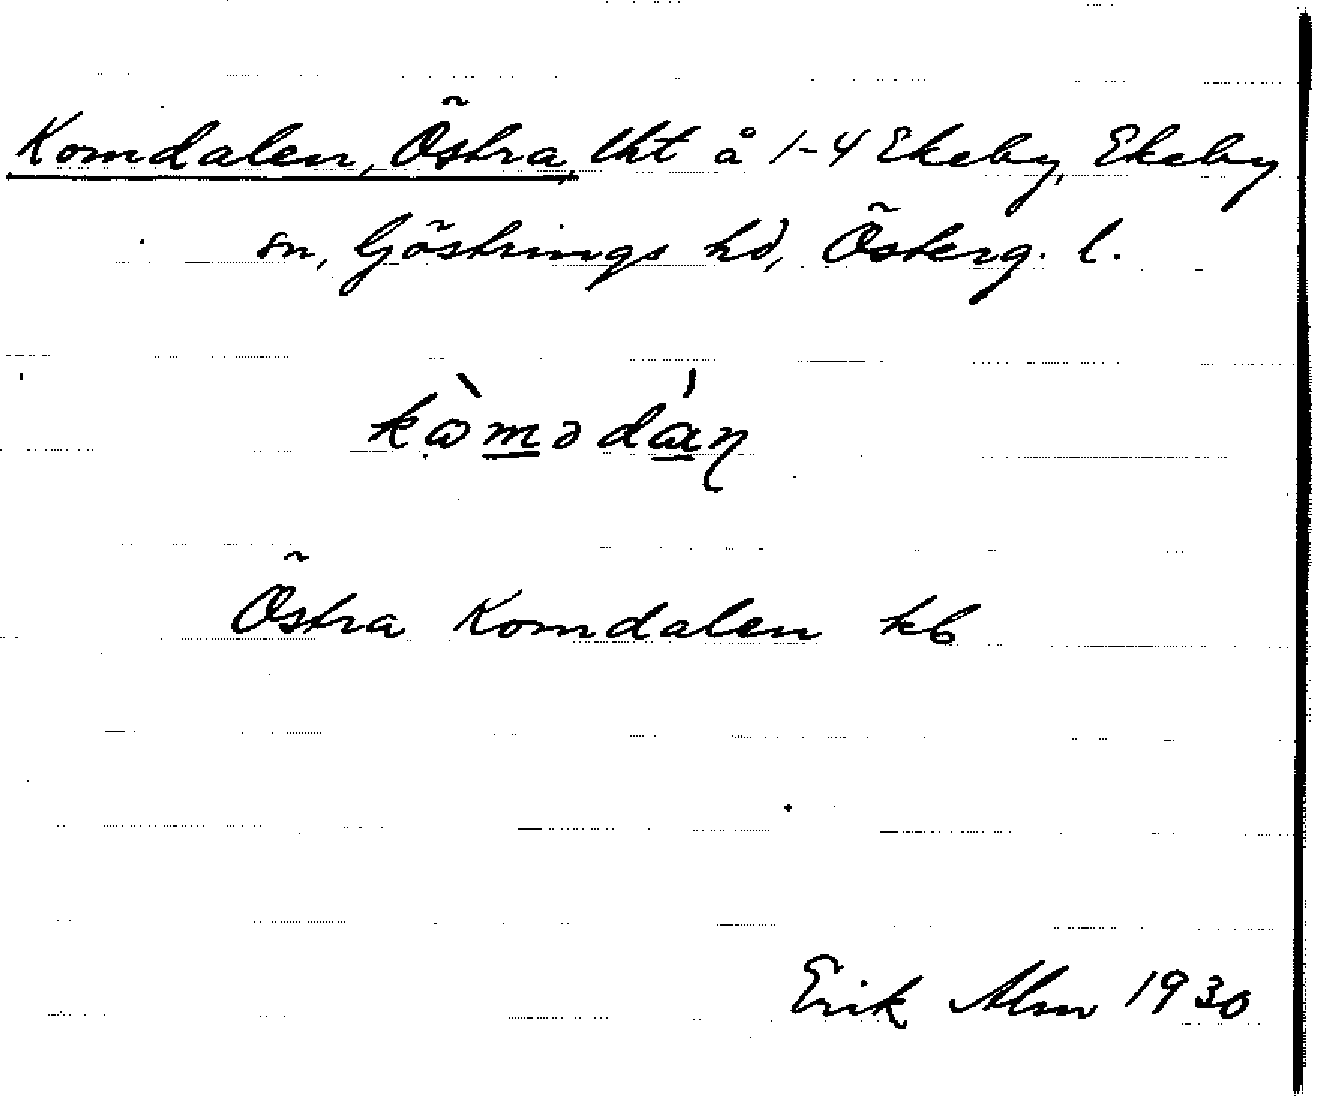 Komdalen, Östra, lht å 1-4 Ekeby, Ekeby
sn, Göstrings hd, Österg. l.
kòmədáŋ
Östra Komdalen kb
Erik Alm 1930